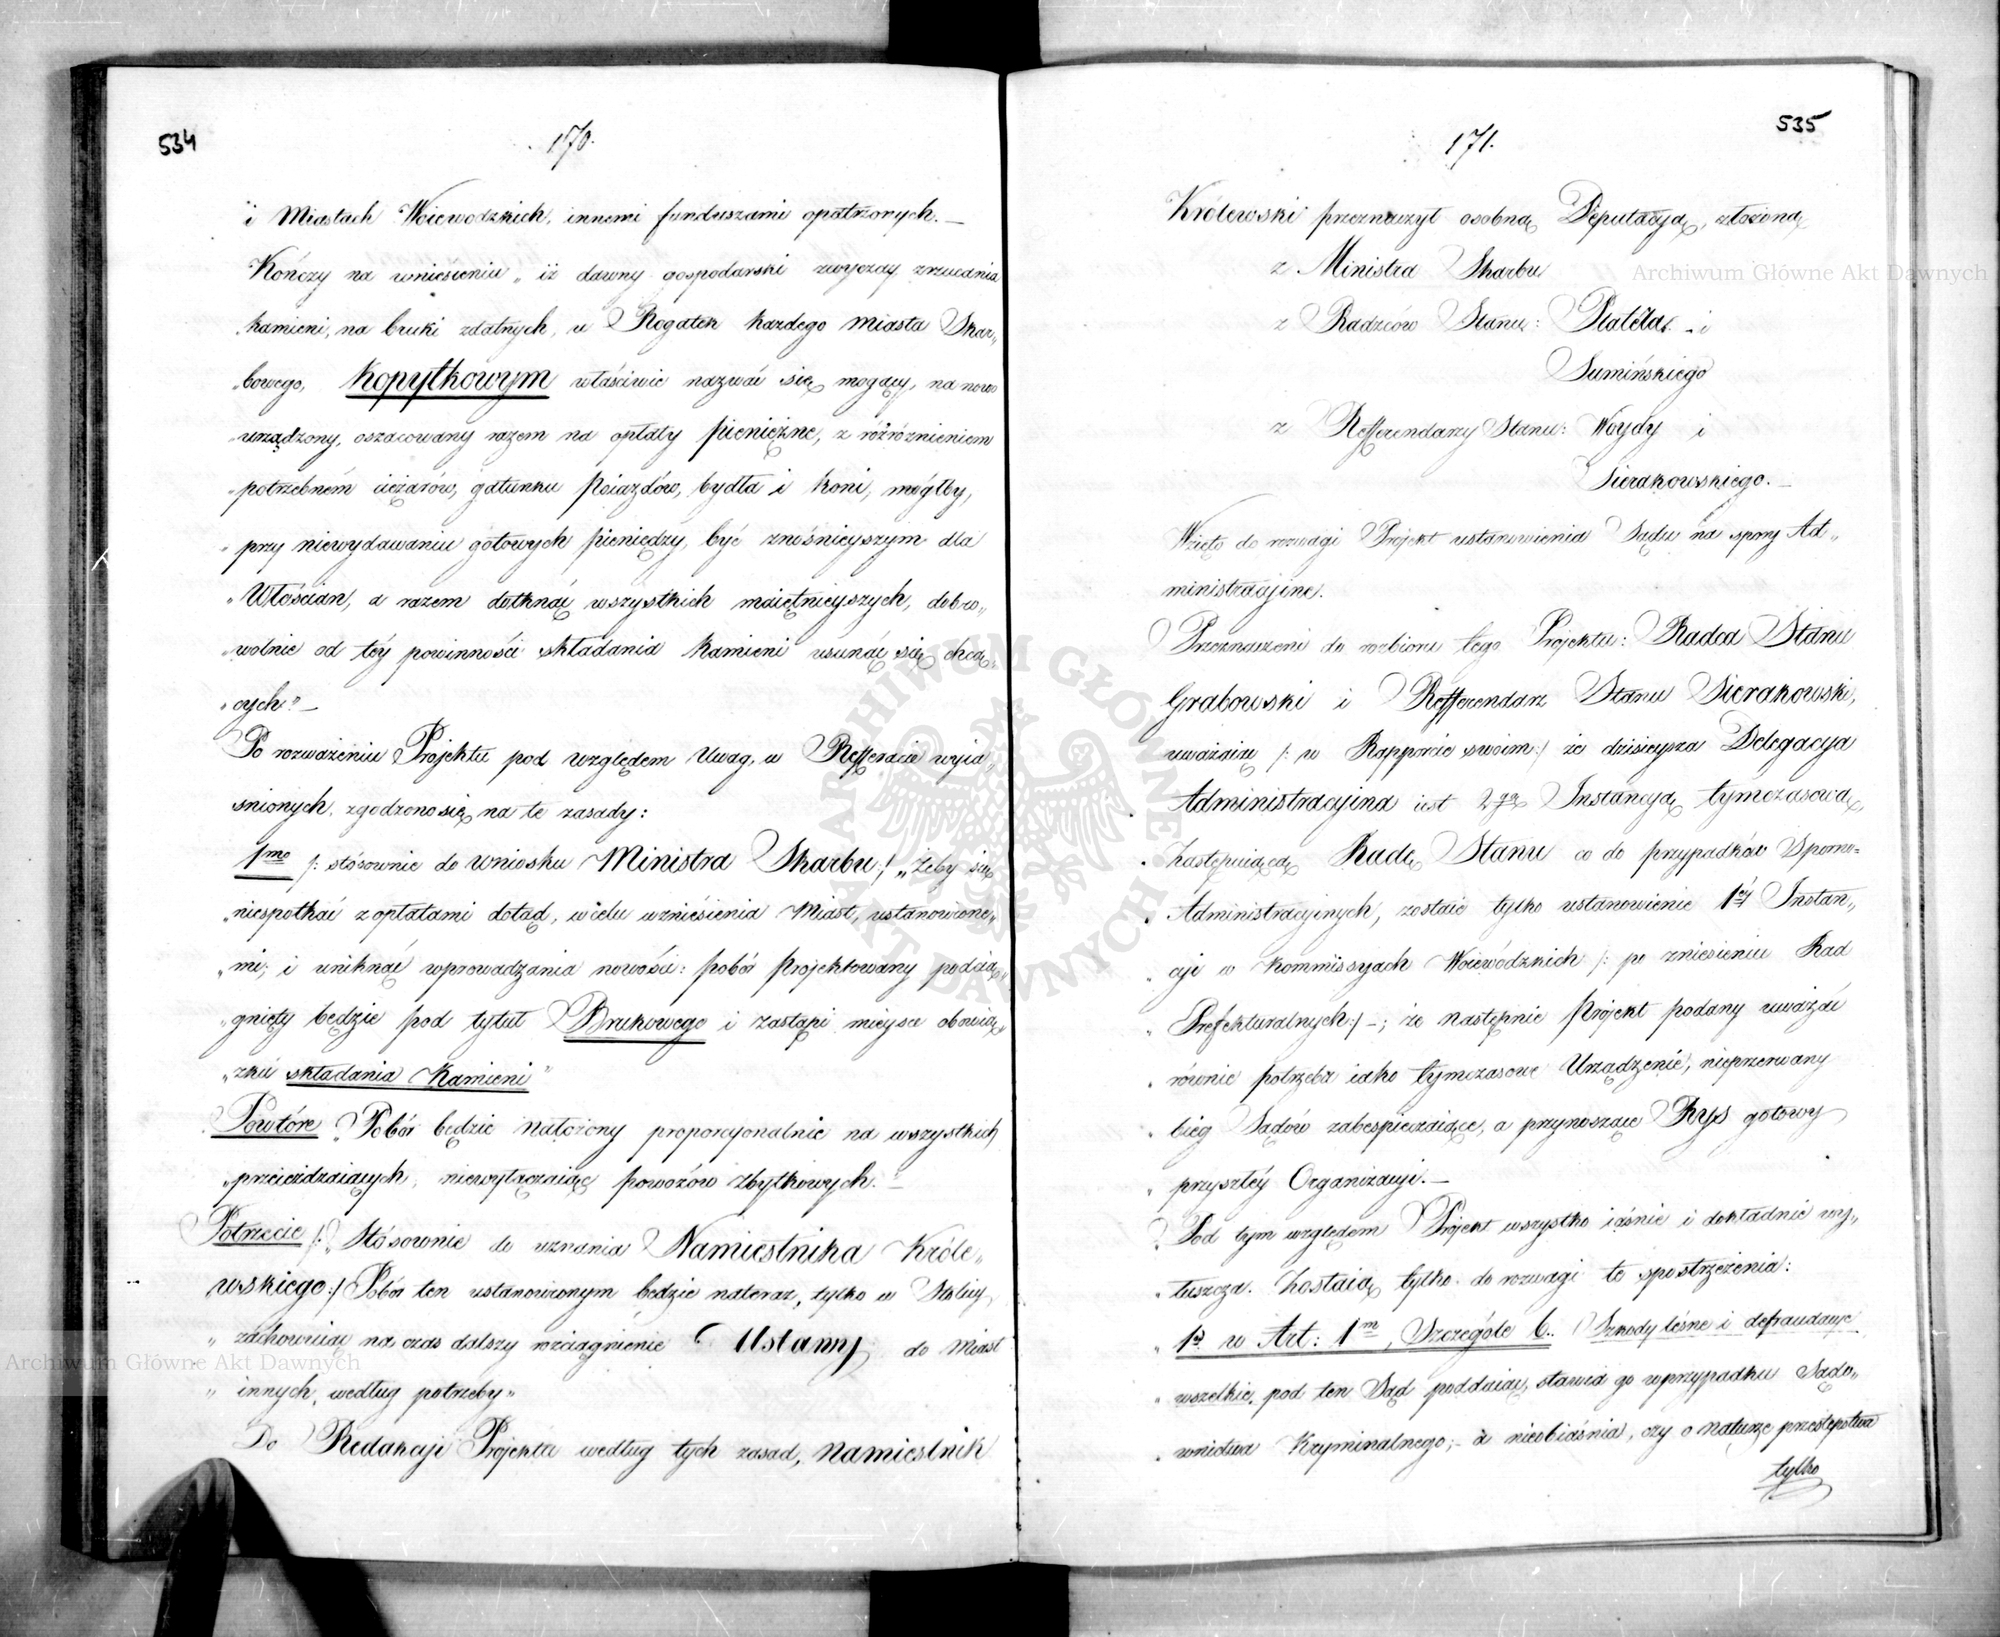 534
170.
i Miastach Woiewodzkich, innemi funduszami opatrzonych. —
Kończy na wniesieniu „iż dawny gospodarski zwyczay zrzucania
„kamieni, na bruki zdatnych, u Rogatek każdego miasta Skar„
„bowego, Kopytkowym właściwie nazwać się mogący, na nowo
„urządzony, oszacowany razem na opłaty pieniężne, z rózróżnieniem
„potrzebném ciężarów, gatunku Poiazdów, bydła i koni, mógłby,
„przy niewydawaniu gotowych pieniędzy, być znośnieyszym dla
„Włościan, a razem dotknąć wszystkich maiętnieyszych, dobro„
„wolnie od téy powinności składania kamieni usunąć się chcą„
„cych" —
Po rozważeniu Projektu pod względem Uwag, w Refferacie wyia„
śnionych, zgodzono się na te zasady:
1mo /: stósownie do wniosku Ministra Skarbu :/ „Żeby się
„niespotkać z opłatami dotąd, w celu wzniesienia Miast, ustanowione„
„mi, i uniknąć wprowadzania nowości: pobór projektowany podcią„
„gnięty będzie pod tytuł Brukowego i zastąpi mieysce obowią„
„zku składania Kamieni"
Powtóre „Pobór będzie nałożony proporcyonalnie na wszystkich
„przeieżdzaiących, niewyłączaiąc powozów zbytkowych." —
Potrzecie /: Stósownie do uznania Namiestnika Króle„
wskiego :/ Pobór ten ustanowionym będzie nateraz, tylko w Stolicy
„zachowuiąc na czas dalszy rozciągnienie Ustawy do Miast
„innych, według potrzeby„
Do Redakcji Projektu według tych zasad, Namiestnik
535
171.
Królewski przeznaczył osobną Deputacyą, złożoną
z Ministra Skarbu
z Radzców Stanu: Platera i
Sumińskiego
z Refferendarzy Stanu: Woydy i
Sierakowskiego. —
Wzięto do rozwagi Projekt ustanowienia Sądu na spory Ad„
ministracyjne.
Przeznaczeni do rozbioru tego Projektu: Radca Stanu
Grabowski i Refferendarz Stanu Sierakowski,
uważaiąc /: w Rapporcie swoim :/ że dzisieysza Delegacya
Administracyjna iest 2gą Instancyą tymczasową,
„zastępuiącą Radę Stanu co do przypadków Sporno=
„Administracyjnych, zostaie tylko ustanowienie 1éy Instan„
„cji w Kommissyach Woiewódzkich /: po zniesieniu Rad
„Prefekturalnych :/ —; że następnie Projekt podany uważać
„równie potrzeba iako tymczasowe Urządzenie, nieprzerwany
„bieg Sądów zabespieczaiące, a przynoszące Rys gotowy
„przyszłéy Organizacyi. —
„Pod tym względem Projekt wszystko iaśnie i dokładnie wy„
„łuszcza. Zostaią tylko do rozwagi te spostrzeżenia:
„1o w Art: 1m, Szczególe 6. Szkody leśne i defraudacye
„wszelkie, pod ten Sąd poddaiąc, stawia go w przypadku Sądo„
„wnictwa Kryminalnego; — a nieobiaśnia, czy o naturze przestępstwa
tylko
Archiwum Główne Akt Dawnych
Archiwum Główne Akt Dawnych
ARCHIWUM GŁÓWNE AKT DAWNYCH